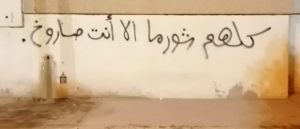 كلهم شورما الا أنت صاروخ.